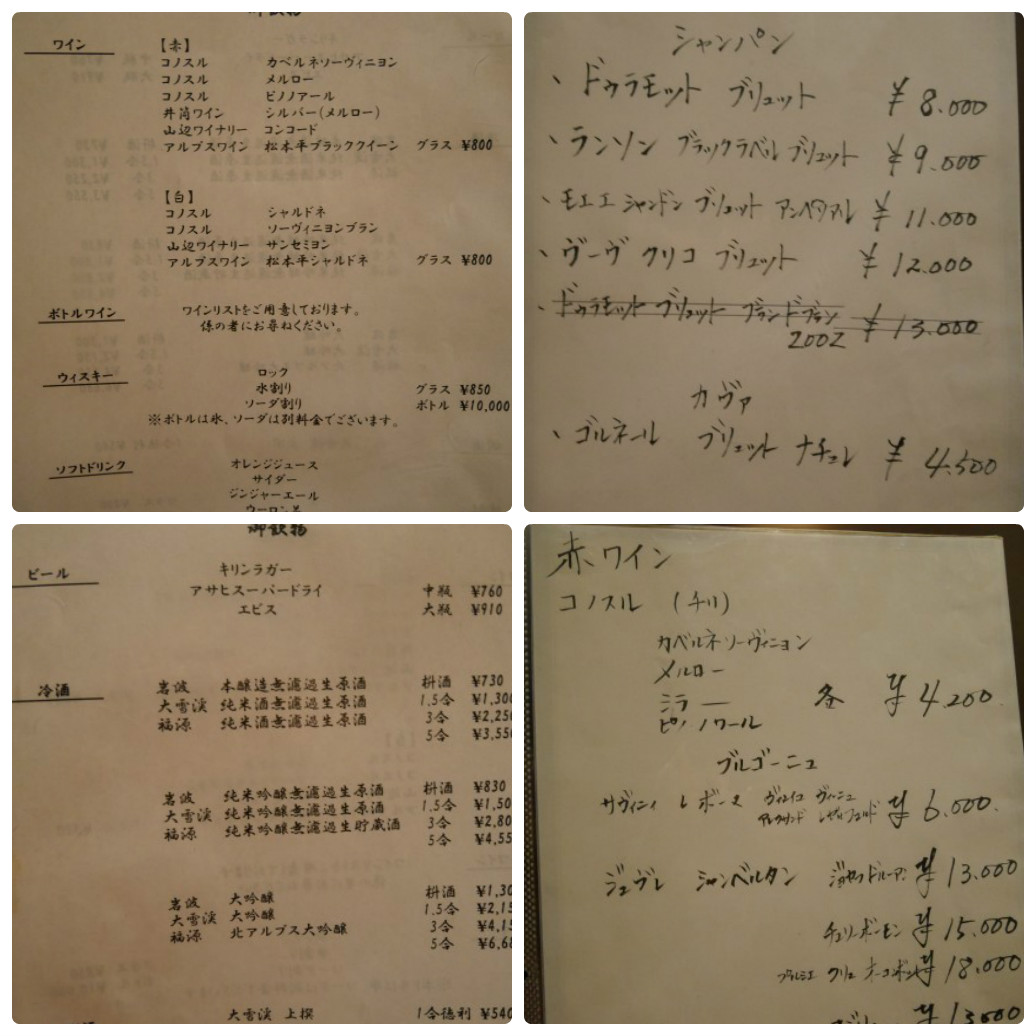 ワイン 【赤】
コノスル カベルネソーヴィニヨン
コノスル メルロー
コノスル ピノノアール
井筒ワイン シルバー(メルロー)
山辺ワイナリー コンコード
アルプスワイン 松本平ブラッククイーン グラス ¥800
【白】
コノスル シャルドネ
コノスル ソーヴィニヨンブラン
山辺ワイナリー サンセミヨン
アルプスワイン 松本平シャルドネ グラス ¥800
ボトルワイン ワインリストをご用意しております。
係の者にお尋ねください。
ウィスキー ロック
水割り グラス ¥850
ソーダ割り ボトル ¥10,000
※ボトルは氷、ソーダは別料金でございます。
ソフトドリンク オレンジジュース
サイダー
ジンジャーエール
シャンパン
、ドゥラモット ブリュット ¥8.000
、ランソン ブラックラベル ブリュット ¥9.000
、モエエシャンドン ブリュット アンペリアル ¥11.000
、ヴーヴ クリコ ブリュット ¥12.000
、ドゥラモット ブリュット ブランドブラン ¥13.000
2002
カヴァ
、ゴルネール ブリュット ナチュレ ¥4.500
御飲物
ビール キリンラガー
アサヒスーパードライ 中瓶 ¥760
エビス 大瓶 ¥910
冷酒 岩波 本醸造無濾過生原酒 枡酒 ¥730
大雪渓 純米酒無濾過生原酒 1.5合 ¥1,300
福源 純米酒無濾過生原酒 3合 ¥2,250
5合 ¥3,550
岩波 純米吟醸無濾過生原酒 枡酒 ¥830
大雪渓 純米吟醸無濾過生原酒 1.5合 ¥1,50
福源 純米吟醸無濾過生貯蔵酒 3合 ¥2,80
5合 ¥4,55
岩波 大吟醸 枡酒 ¥1,30
大雪渓 大吟醸 1.5合 ¥2,15
福源 北アルプス大吟醸 3合 ¥4,15
5合 ¥6,6
大雪渓 上撰 1合徳利 ¥540
赤ワイン
コノスル (チリ)
カベルネソーヴィニョン
メルロー
シラー 各 ¥4.200
ピノノワール
ブルゴーニュ
サヴィニィ レ ボーヌ ヴィエイユ ヴィーニュ ¥6.000.
ジュヴレ シャンベルタン ¥13.000
¥15.000
プルミエ クリュ ¥18.000
¥13.000